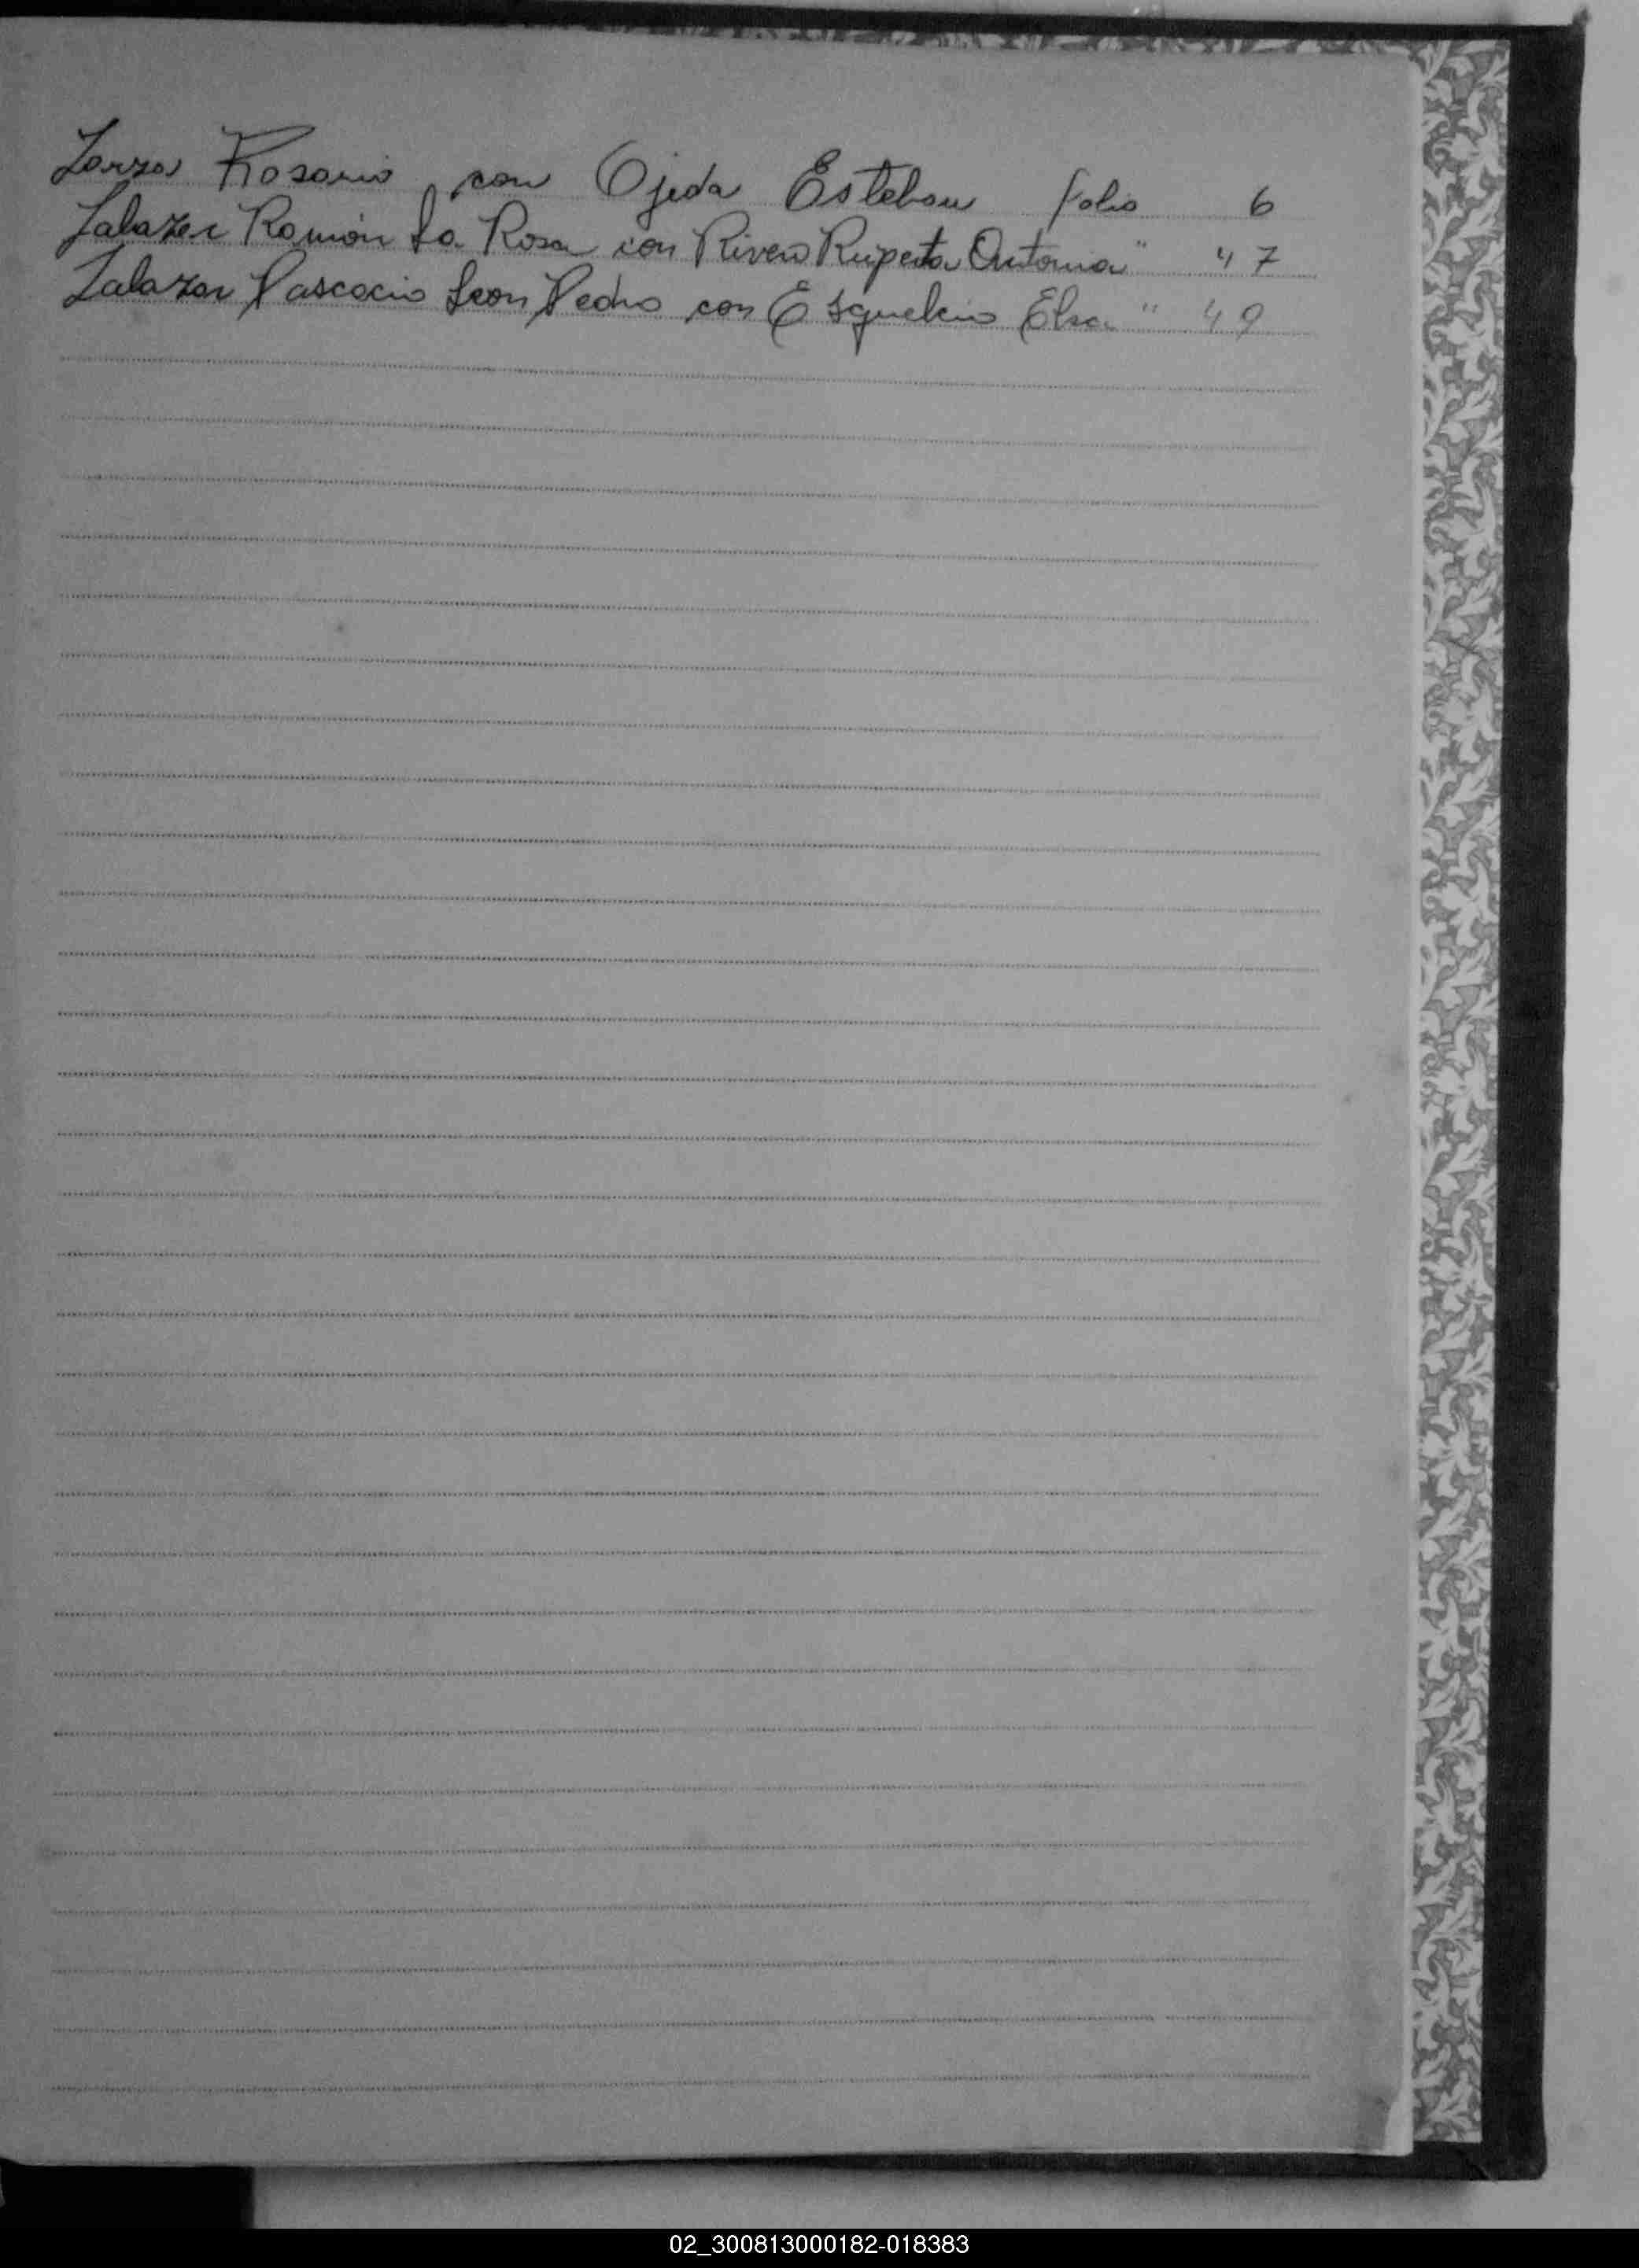 Zorza Rosario con Ojeda Esteban folio 6
Zalazar Ramón La Rosa con Rivero Ruperta Antonia " 47
Zalazar Pascacio Leon Pedro con Esquelcio Elsa " 49
02_300813000182-018383